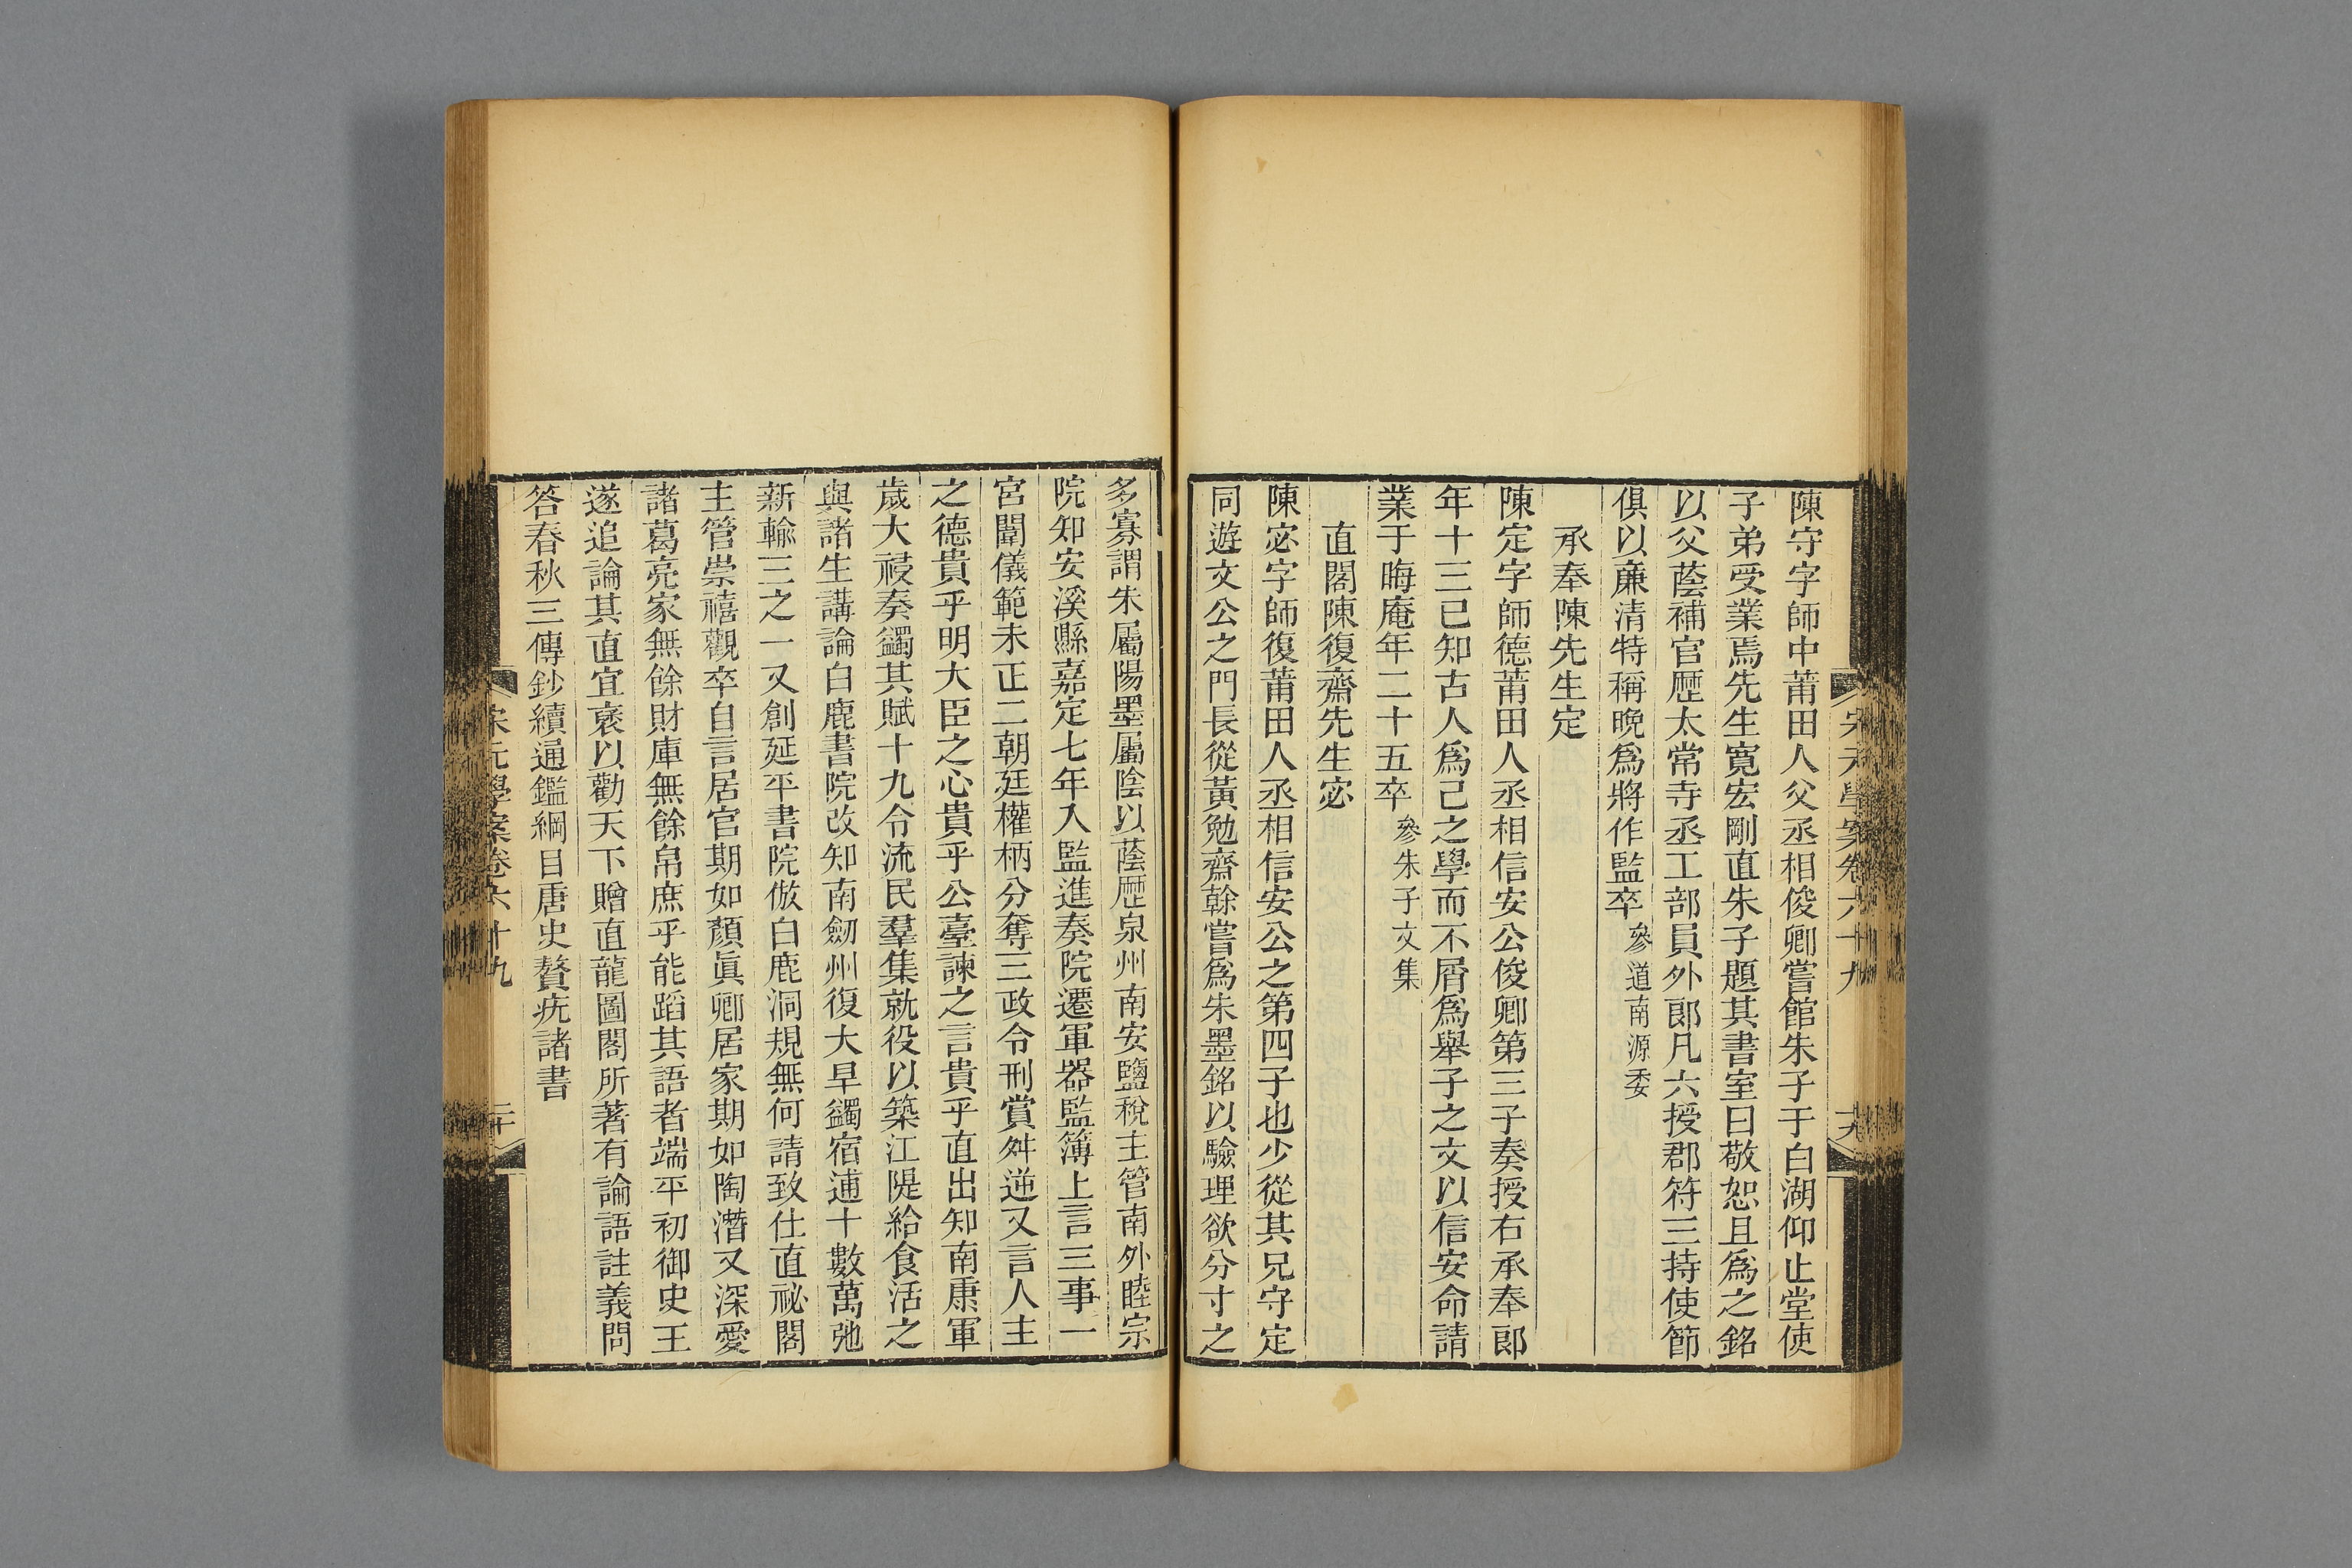 陳守字師中莆田人父丞相俊卿嘗館朱子于白湖仰止堂使
子弟受業焉先生寬宏剛直朱子題其書室曰敬恕且爲之銘
以父蔭補官歷太常寺丞工部員外郎凡六授郡符三持使節
俱以廉清特稱晚爲將作監卒參道南源委
承奉陳先生定
陳定字師德莆田人丞相信安公俊卿第三子奏授右承奉郎
年十三已知古人爲己之學而不屑爲舉子之文以信安命請
業于晦庵年二十五卒參朱子文集
直閣陳復齋先生宓
陳宓字師復莆田人丞相信安公之第四子也少從其兄守定
同遊文公之門長從黃勉齋榦嘗爲朱墨銘以驗理欲分寸之
多寡謂朱屬陽墨屬陰以蔭歷泉州南安鹽稅主管南外睦宗
院知安溪縣嘉定七年入監進奏院遷軍器監簿上言三事一
宮闈儀範未正二朝廷權柄分奪三政令刑賞舛逆又言人主
之德貴乎明大臣之心貴乎公臺諫之言貴乎直出知南康軍
歲大祲奏蠲其賦十九令流民羣集就役以築江隄給食活之
與諸生講論白鹿書院改知南劒州復大旱蠲宿逋十數萬弛
新輸三之一又創延平書院倣白鹿洞規無何請致仕直祕閣
主管崇禧觀卒自言居官期如顏眞卿居家期如陶潛又深愛
諸葛亮家無餘財庫無餘帛庶乎能蹈其語者端平初御史王
遂追論其直宜褒以勸天下贈直龍圖閣所著有論語註義問
答春秋三傳鈔續通鑑綱目唐史贅疣諸書
宋元學案卷六十九
二十